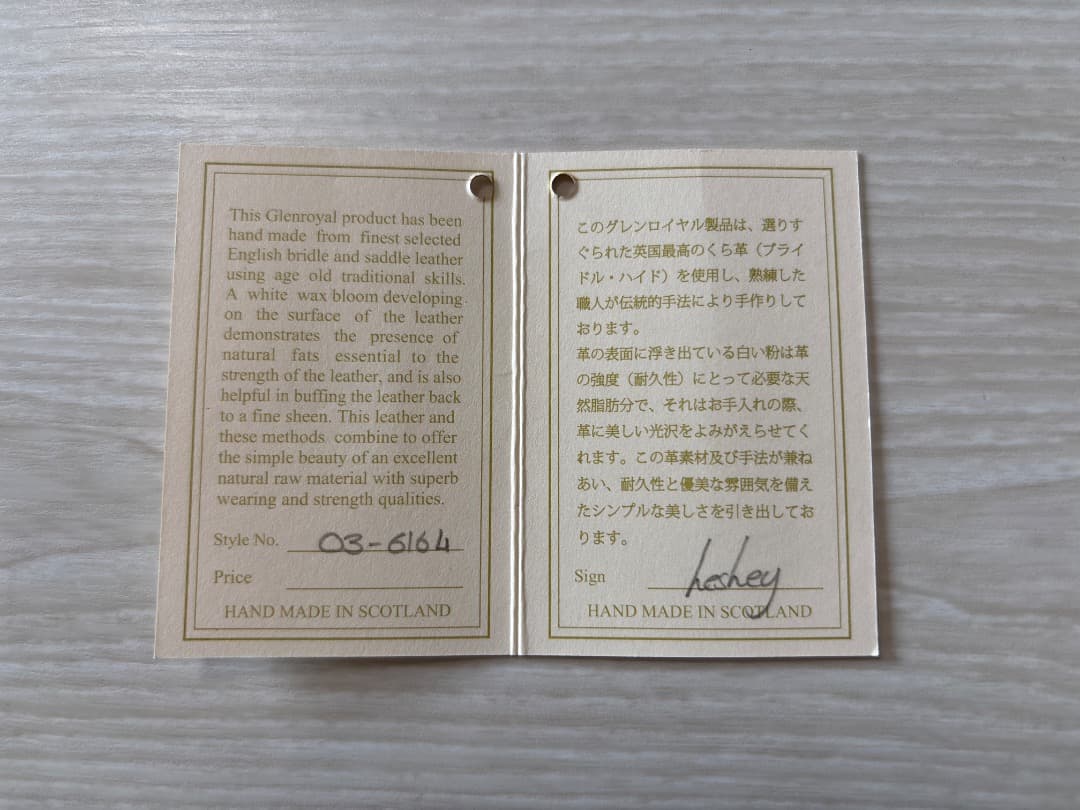 This Glenroyal product has been
hand made from finest selected
English bridle and saddle leather
using age old traditional skills.
A white wax bloom developing
on the surface of the leather
demonstrates the presence of
natural fats essential to the
strength of the leather, and is also
helpful in buffing the leather back
to a fine sheen. This leather and
these methods combine to offer
the simple beauty of an excellent
natural raw material with superb
wearing and strength qualities.
Style No. 03-6164
Price
HAND MADE IN SCOTLAND
このグレンロイヤル製品は、選りす
ぐられた英国最高のくら革（ブライ
ドル・ハイド）を使用し、熟練した
職人が伝統的手法により手作りして
おります。
革の表面に浮き出ている白い粉は革
の強度（耐久性）にとって必要な天
然脂肪分で、それはお手入れの際、
革に美しい光沢をよみがえらせてく
れます。この革素材及び手法が兼ね
あい、耐久性と優美な雰囲気を備え
たシンプルな美しさを引き出してお
ります。
Sign
HAND MADE IN SCOTLAND